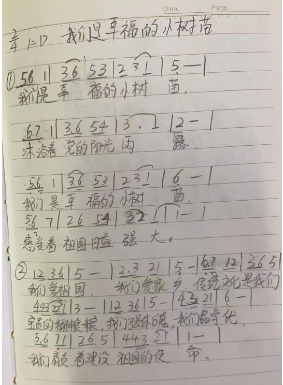 Date. Page.
1=D 我们是幸福的小树苗
① 56 1 | 36 53 | 2 3 1 | 5 — |
我们是 幸 福的小树 苗,
67 1 | 36 54 | 3 . 1 | 2 — |
沐浴着 党的阳光 雨 露
56 1 | 36 53 | 2 3 1 | 6 — |
我们是 幸福的小树 苗
56 7 | 26 54 | 32 | 1 — |
感受着 祖国日益 强 大。
② 12 36 | 5 — | 2.3 21 | 5 — | 67 12 | 3 6 5 |
我们爱祖国 我们爱家乡 传统文化是我们
443 21 | 3 — | 12 36 | 5 — | 43 21 | 6 — |
我们
56 71 | 26 5 | 443 21 | 1 — |
我们 着建设 祖国的使 命